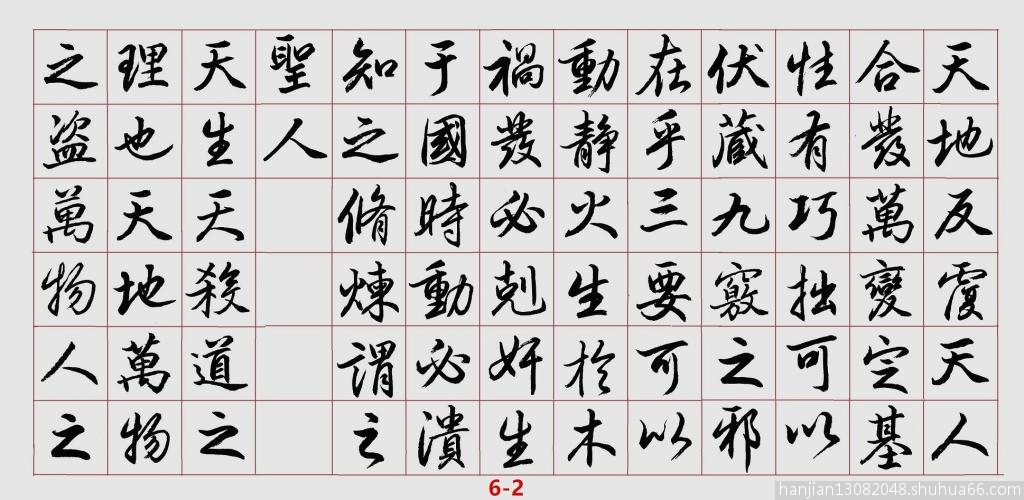 天地反覆天人
合發萬變定基
性有巧拙可以
伏藏九竅之邪
在乎三要可以
動靜火生於木
禍發必剋奸生
于國時動必潰
知之脩煉謂之
聖人
天生天殺道之
理也天地萬物
之盜萬物人之
6-2
hanjian13082048.shuhua66.com